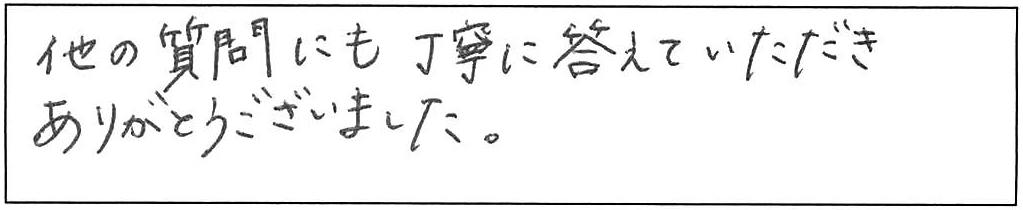 他の質問にも丁寧に答えていただき
ありがとうございました。